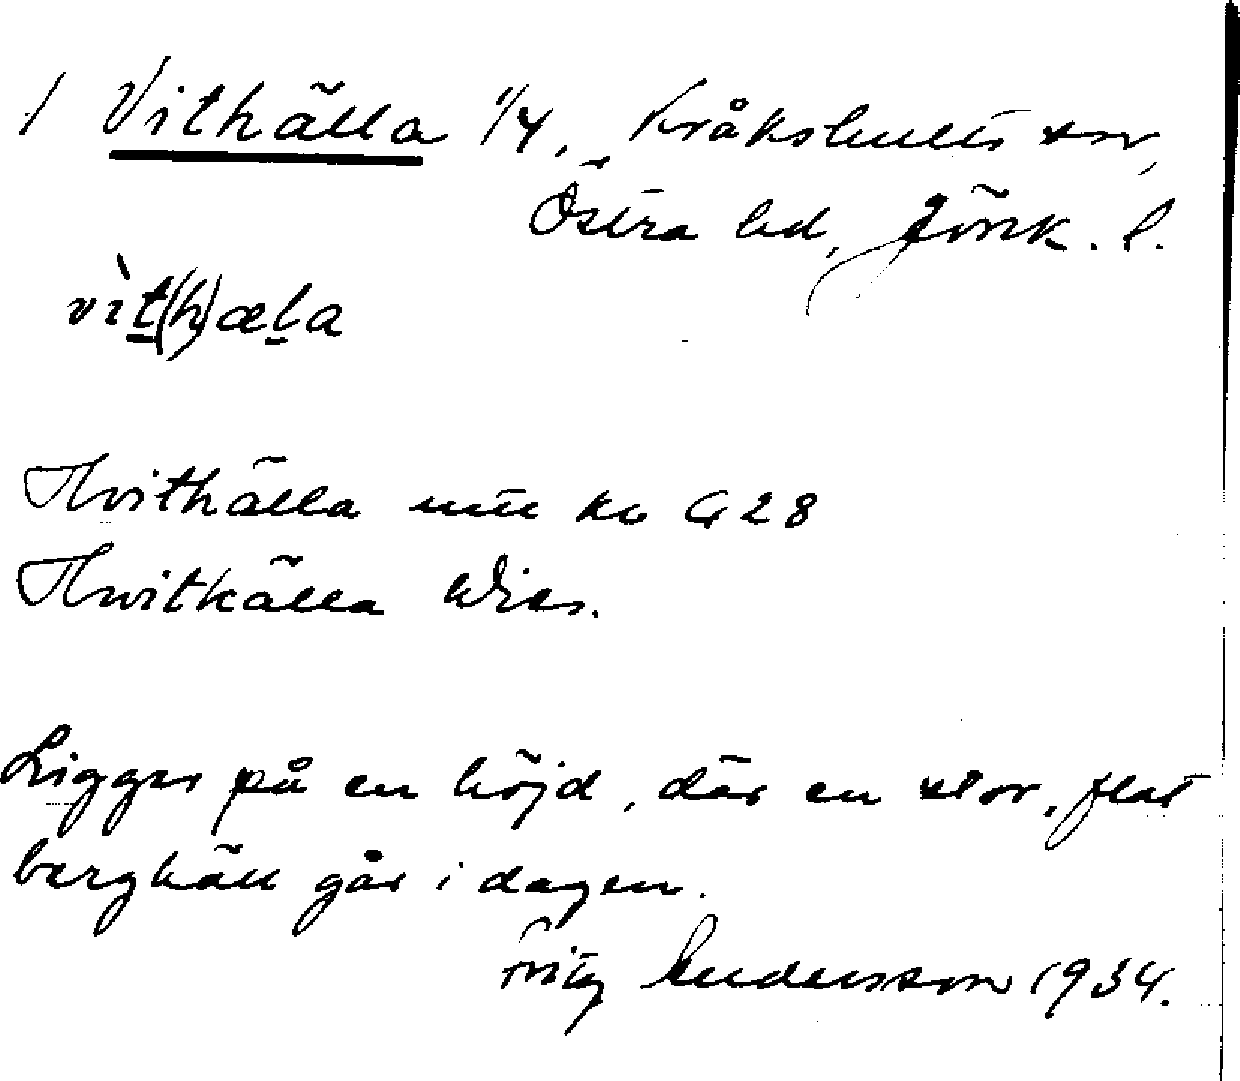 / Vithälla 1/4, Kråkshults snr,
Östra hd, Jönk. l.
vìt(h)æla
Hvithälla
Hwitkälla Wies.
Ligger på en höjd, där en stor, flat
berghäll går i dagen.
Fritz Andersson 1934.